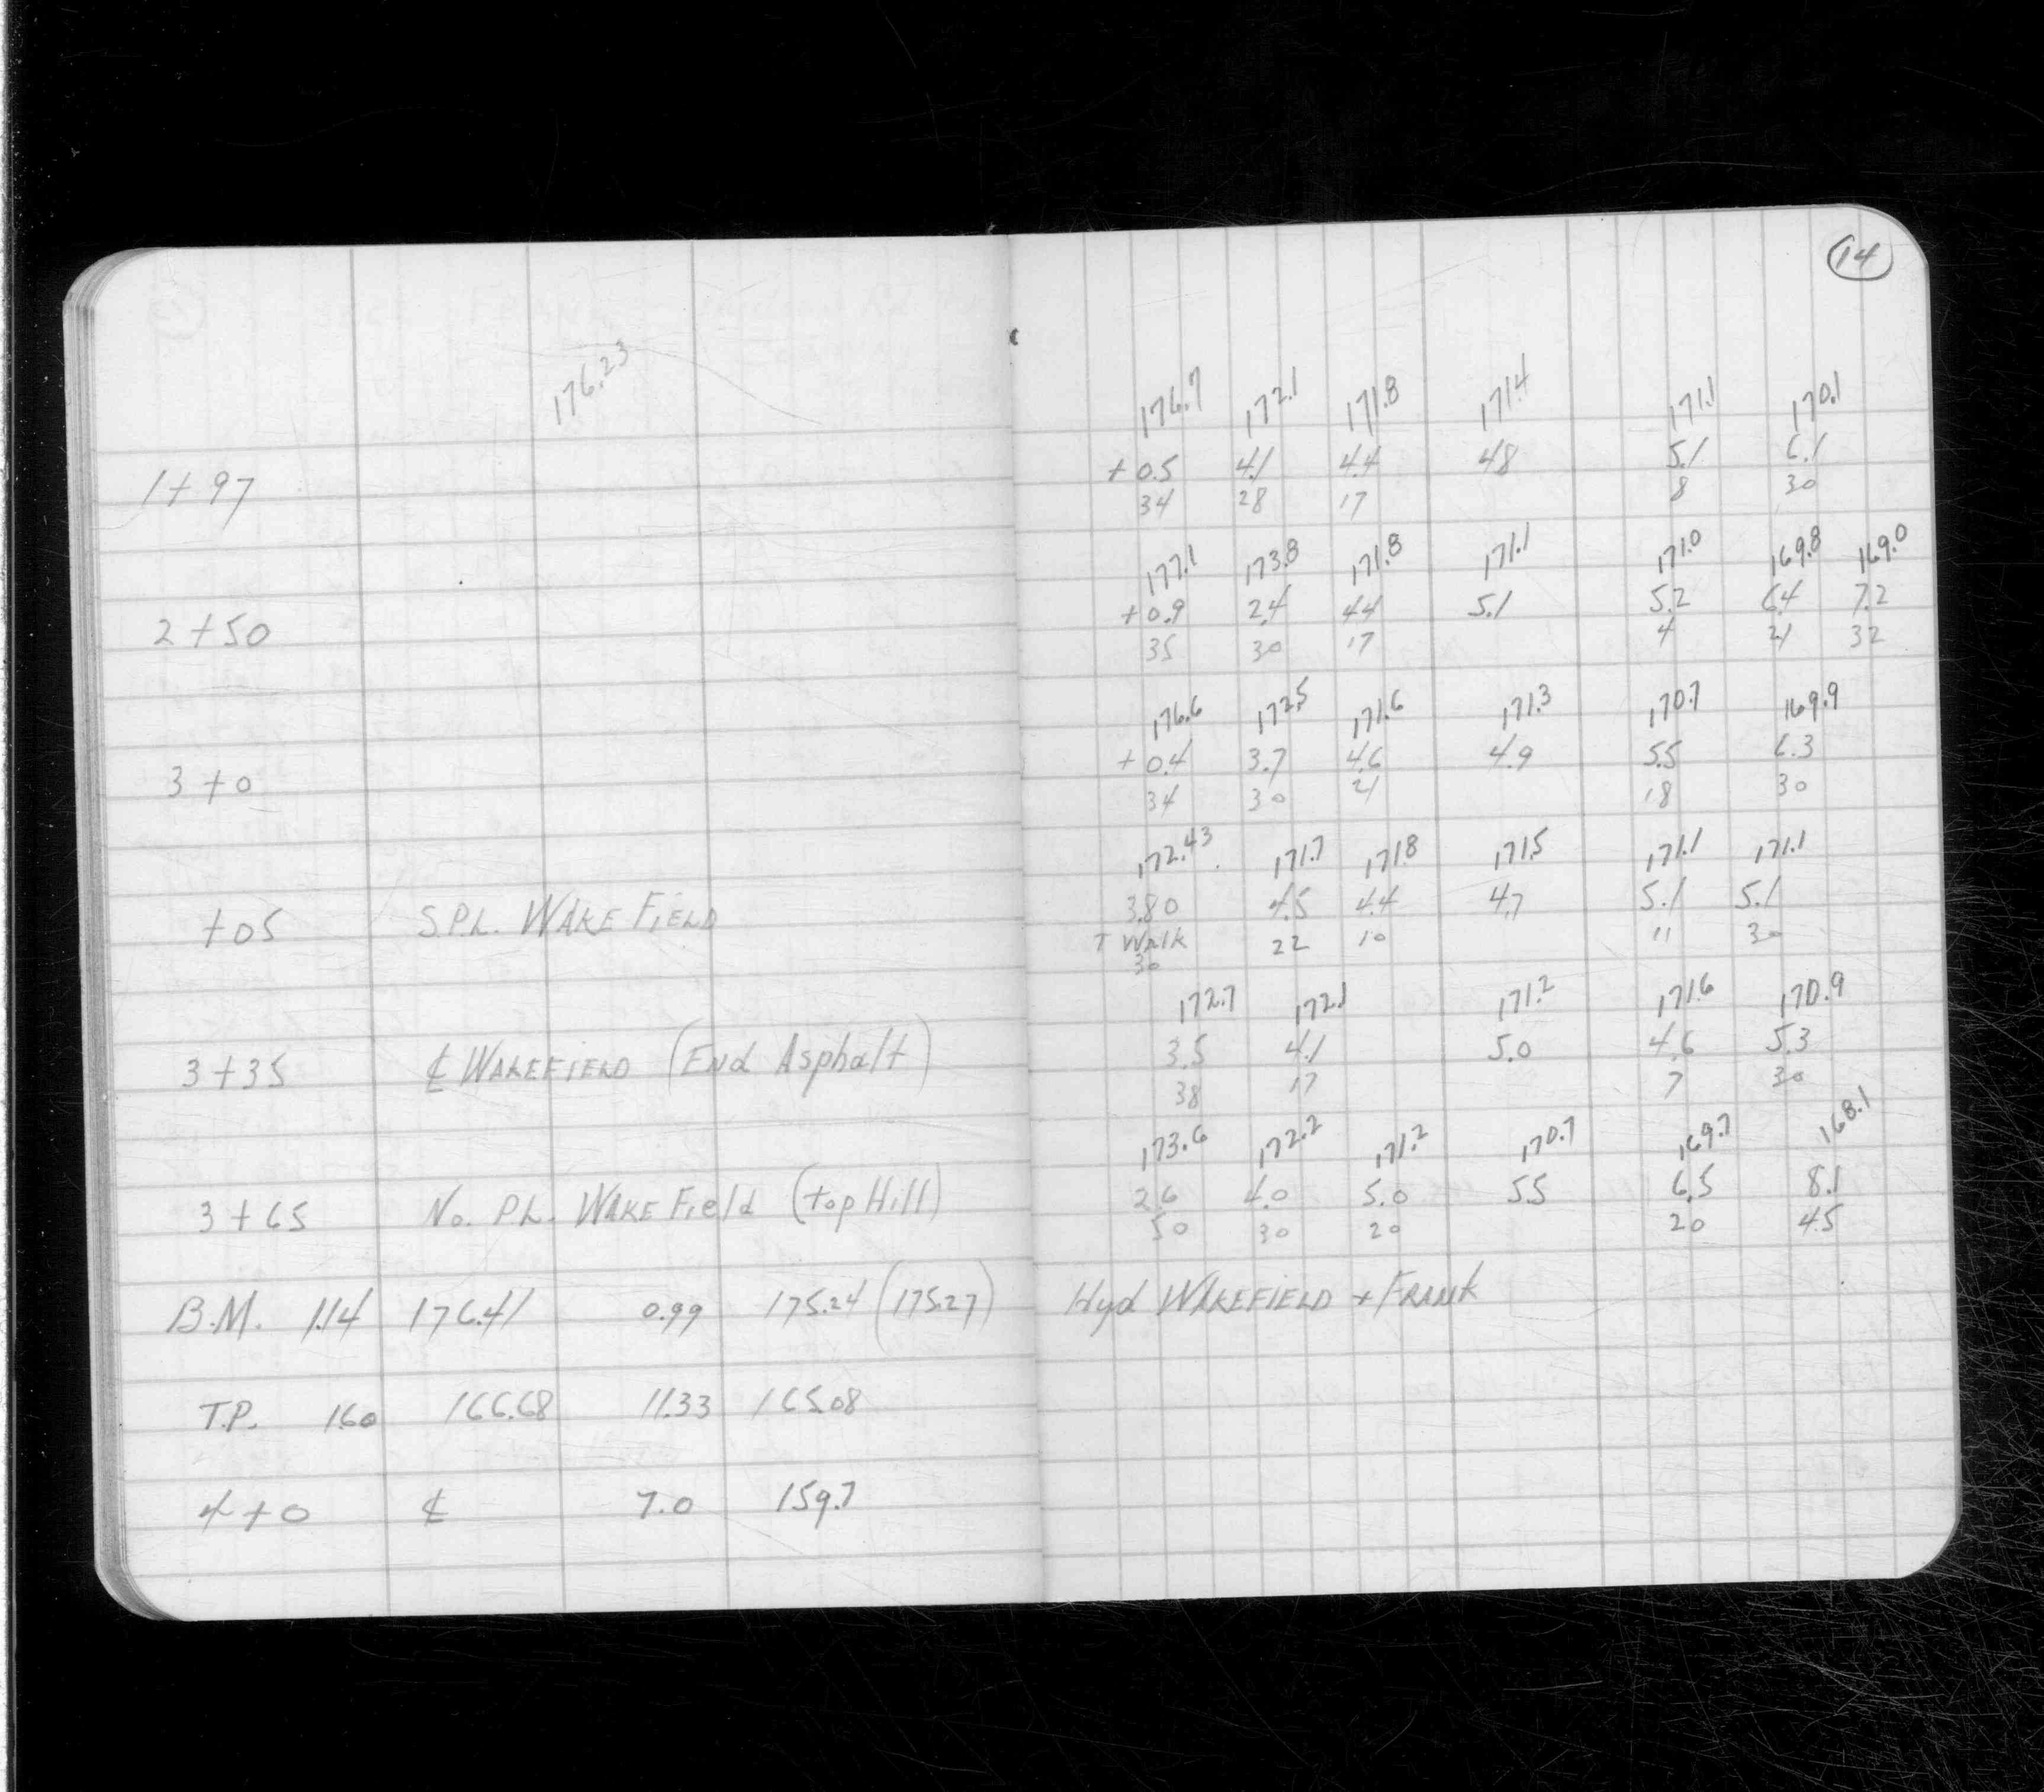 14
176.23
176.7 172.1 171.8 171.4 171.1 170.1
1+97 +0.5 4.1 4.4 4.8 5.1 6.1
34 28 17 8 30
177.1 173.8 171.8 171.1 171.0 169.8 169.0
2+50 +0.9 2.4 4.4 5.1 5.2 6.4 7.2
35 30 17 4 21 32
176.6 172.5 171.6 171.3 170.7 169.9
3+0 +0.4 3.7 4.6 4.9 5.5 6.3
34 30 21 18 30
172.43 171.7 171.8 171.5 171.1 171.1
+05 S.P.L. WAKEFIELD 3.80 4.5 4.4 4.7 5.1 5.1
T Walk 22 10 11 30
30
172.7 172.1 171.2 171.6 170.9
3+35 ℄ WAKEFIELD (End Asphalt) 3.5 4.1 5.0 4.6 5.3
38 17 7 30
173.6 172.2 171.2 170.7 169.7 168.1
3+65 No. P.L. WAKEField (top Hill) 2.6 4.0 5.0 5.5 6.5 8.1
50 30 20 20 45
B.M. 1.14 176.41 0.99 175.24 (175.27) Hyd WAKEFIELD + FRANK
T.P. 1.60 166.68 11.33 165.08
4+0 ℄ 7.0 159.7